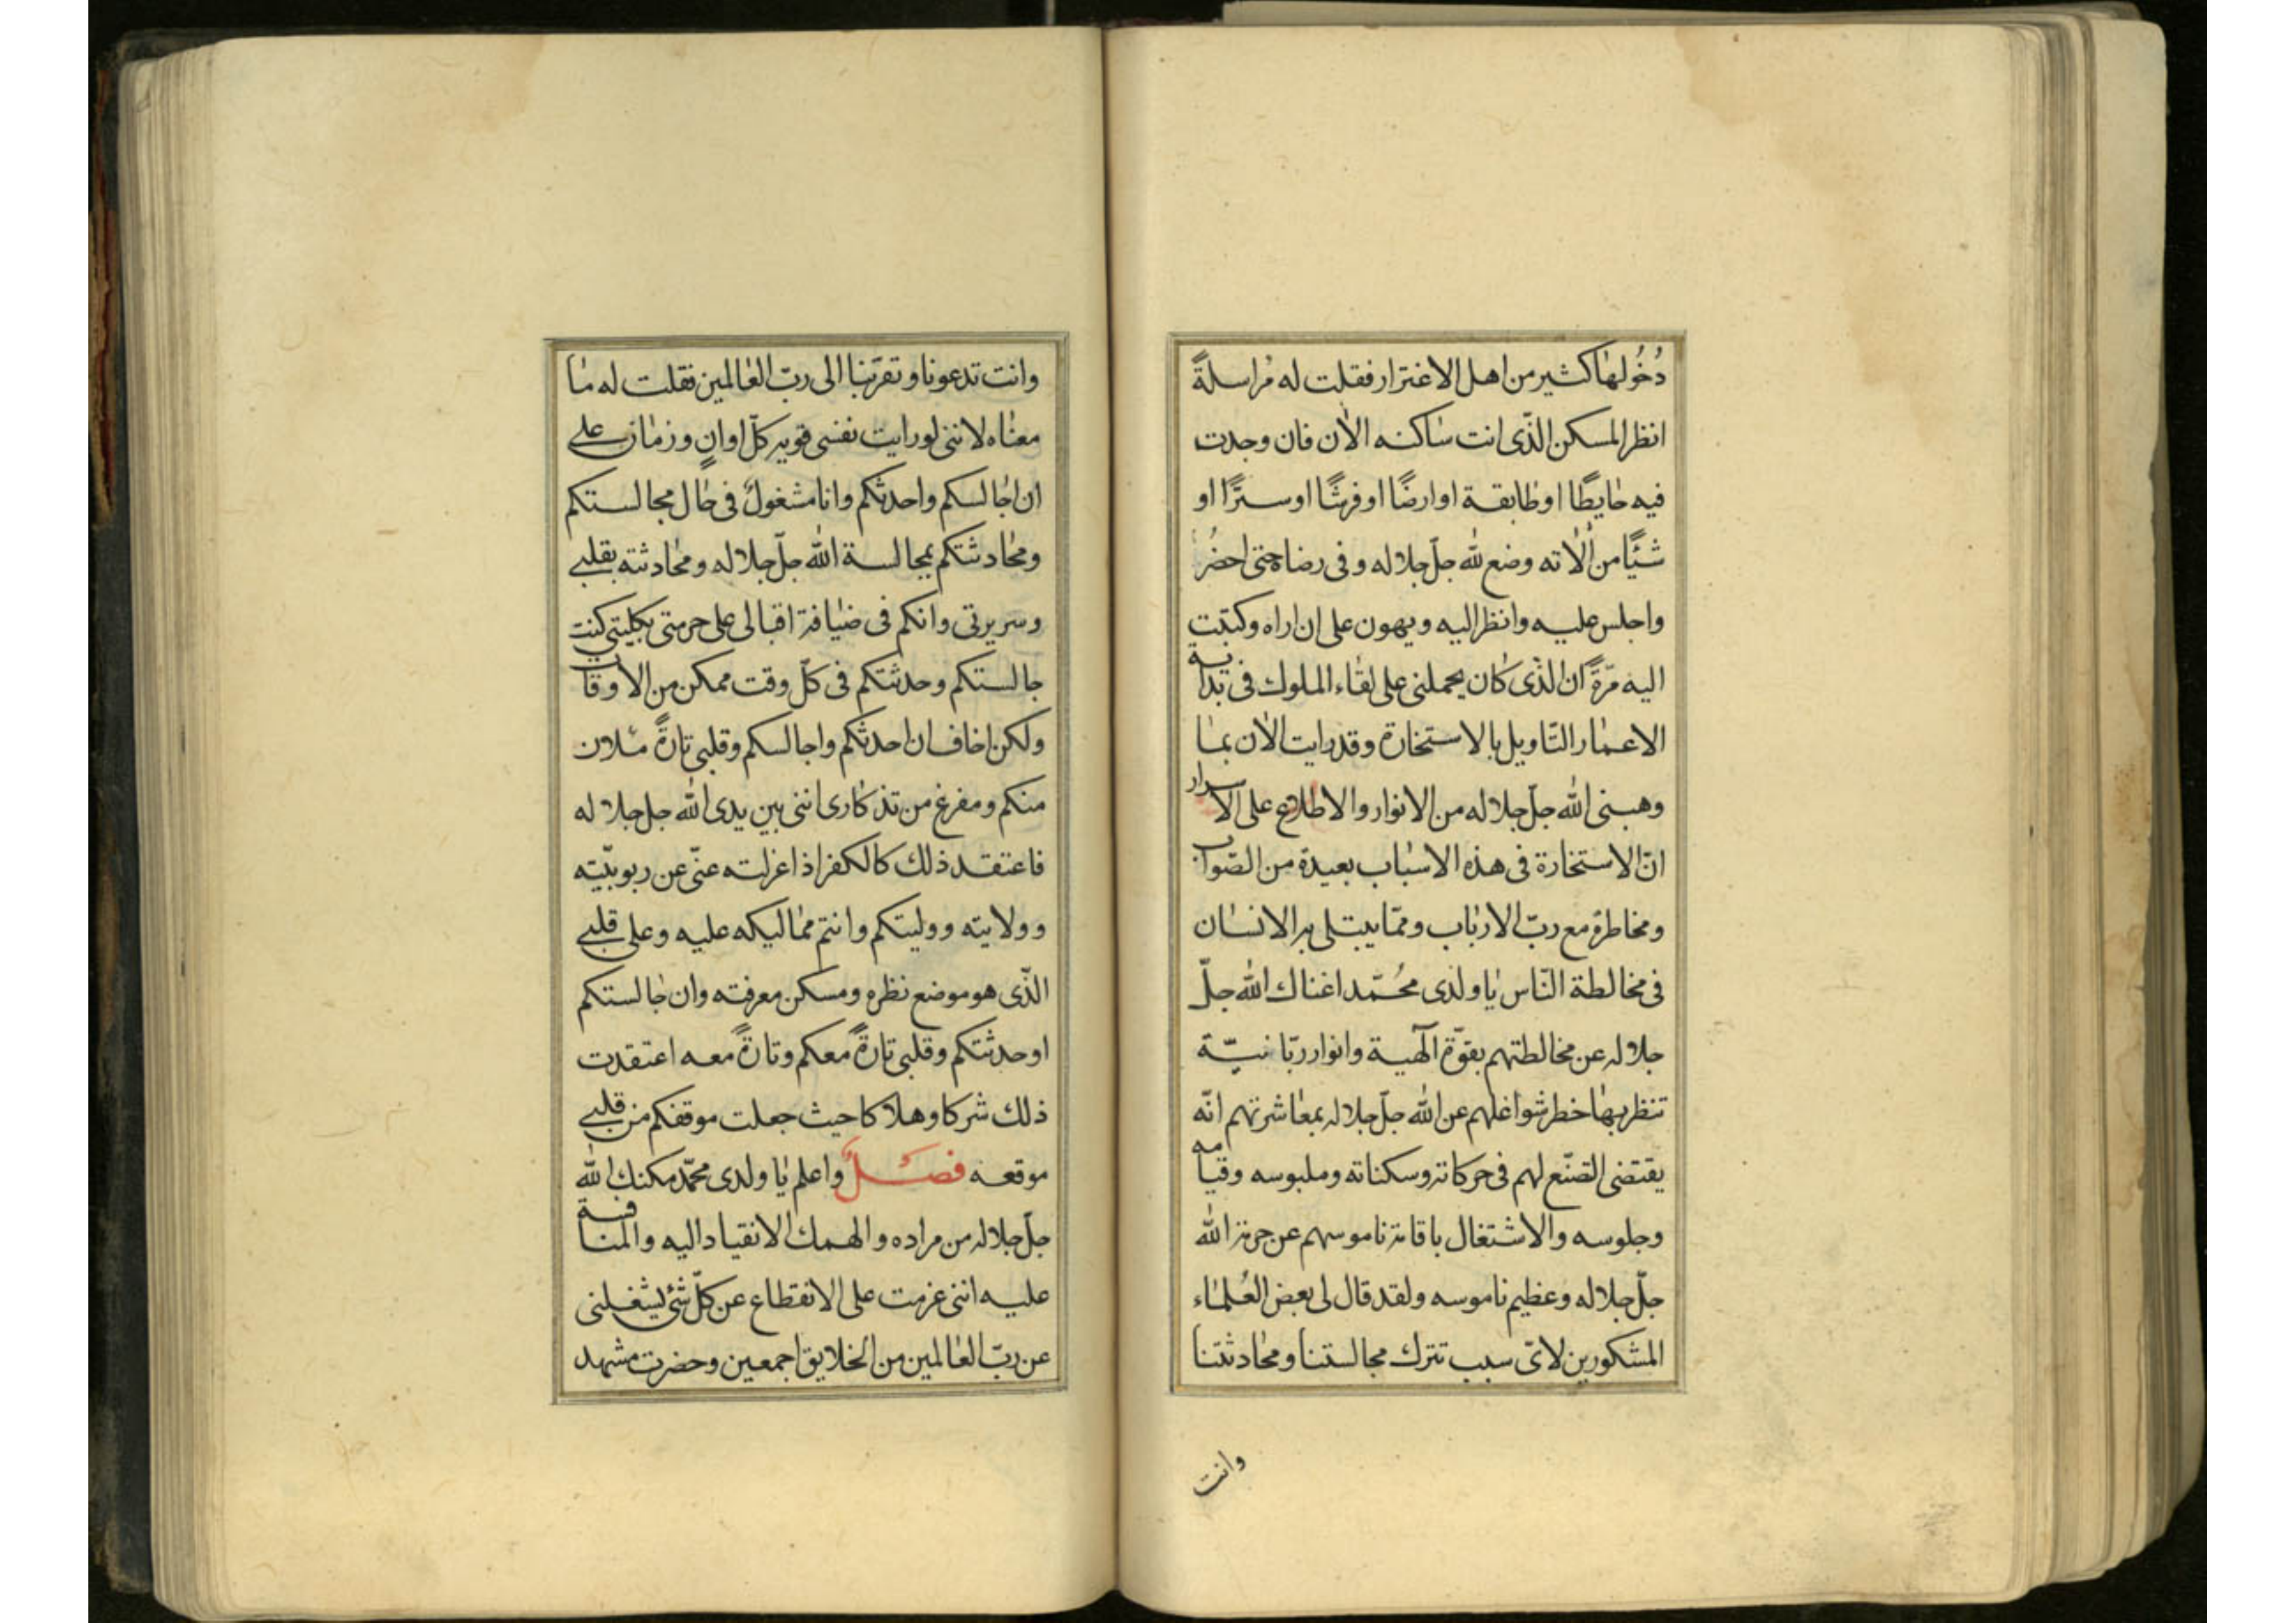 دُخُولهٰا كثير من اهل الاغترار فقلت له مُراسلةً
انظر المسكن الذّى انت سٰاكنه الاٰن فان وجدت
فيه حٰايطًا او طٰابقة او ارضًا او فرشًا او سترًا او
شيًا من اٰلاته وضع لله جلّ جلاله وفى رضاه حتى احضُر
واجلس عليه وانظر اليه ويهون على ان اراه وكتبت
اليه مرّةً ان الذّى كان يحملنى على لقٰاء الملوك فى بداية
الاعمٰار التّاويل بالاستخارة وقد رايت الاٰن بمٰا
وهبنى الله جلّ جلاله من الانوار والاطلاع على الاسرار
انّ الاستخارة فى هذه الاسبٰاب بعيدة من الصّواب
ومخاطرة مع ربّ الاربٰاب وممّا يبتلى به الانسٰان
فى مخالطة النّاس يٰا ولدى محُمّد اغناك الله جلّ
جلاله عن مخالطتهم بقوّة الٓهية وانوار ربّانيّة
تنظر بهٰا خطر شواغلهم عن الله جلّ جلاله بمعٰاشرتهم انّه
يقتضى التصنّع لهم فى حركاته وسكناته وملبوسه وقيامه
وجلوسه والاشتغال باقامة ناموسهم عن حرمة الله
جلّ جلاله وعظيم ناموسه ولقد قال لى بعض العُلمٰاء
المشكورين لاىّ سبب تترك مجالستنا ومحٰادثتنا
وانت
وانت تدعونا وتقرّبنا الى ربّ العٰالمين فقلت له مٰا
معنٰاه لاننى لو رايت نفسى قوية كلّ اوانٍ وزمٰان على
ان اجٰالسكم واحدثكم وانا مشغولٌ فى حٰال مجالستكم
ومحٰادثتكم بمجالسة الله جلّ جلاله ومحٰادثته بقلبى
وسريرتى وانكم فى ضيٰافة اقبالى على حرمتى بكليتى كنت
جالستكم وحدثتكم فى كلّ وقت ممكن من الاوقات
ولكن اخاف ان احدثكم واجالسكم وقلبى تارةً ملان
منكم ومفرغ من تذكارى اننى بين يدى الله جل جلاله
فاعتقد ذلك كالكفر اذا عزلته عنّى عن ربوبيّته
وولايته ووليتكم وانتم ممٰاليكه عليه وعلى قلبى
الذّى هو موضع نظره ومسكن معرفته وان جٰالستكم
او حدثتكم وقلبى تارةً معكم وتارةً معه اعتقدت
ذلك شركا وهلاكا حيث جعلت موقفكم من قلبى
موقعه فصلٌ واعلم يٰا ولدى محمّد مكنك الله
جلّ جلاله من مراده والهمك الانقياد اليه والمنافسة
عليه اننى عزمت على الانقطاع عن كلّ شئ يشغلنى
عن ربّ العٰالمين من الخلايق اجمعين وحضرت مشهد